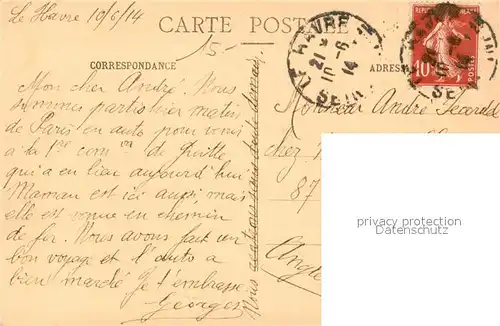 Le Havre 10/6/14
CARTE POSTALE
CORRESPONDANCE
ADRESSE
Mon cher André. Nous
sommes partis hier matin
de Paris en auto pour venir
à la 1ère com on de Guitte
qui a eu lieu aujourd'hui
Maman est ici aussi mais
elle est venue en chemin
de fer. Nous avons fait un
bon voyage et l'auto a
bien marché Je t'embrasse
Georges
Nous
demain
LE HAVRE
21 *
10 - 6
14
SEINE
10
POSTES
Monsieur André Lecard
chez
87
Angle
privacy protection
Datenschutz